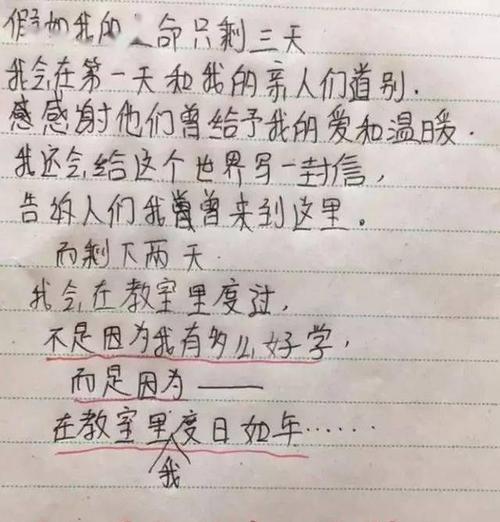 假如我的 命只剩三天
我会在第一天和我的亲人们道别.
感感谢他们曾给予我的爱和温暖.
我还会给这个世界写一封信,
告诉人们我曾曾来到这里。
而剩下两天.
我会在教室里度过,
不是因为我有多么好学,
而是因为——
在教室里度日如年……
我